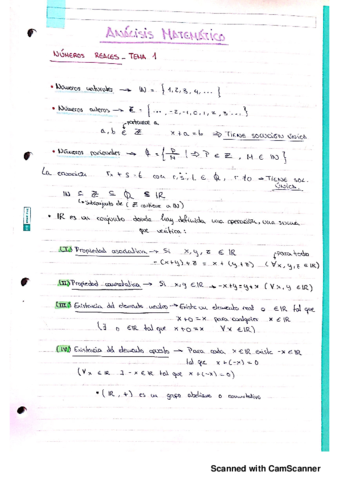 ANÁLISIS MATEMÁTICO
NÚMEROS REALES - TEMA 1
• Números naturales → ℕ = {1, 2, 3, 4, ...}
• Números enteros → ℤ = {..., -2, -1, 0, 1, 2, 3, ...}
pertenece a
a, b ∈ ℤ x + a = b ⇒ TIENE SOLUCIÓN ÚNICA
• Números racionales → ℚ = {P/M | P ∈ ℤ, M ∈ ℕ}
La ecuación r x + s = t con r, s, t ∈ ℚ, r ≠ 0 → TIENE SOL. ÚNICA.
ℕ ⊆ ℤ ⊆ ℚ ⊆ ℝ
• ℝ es un conjunto donde hay definida una operación, una suma
que verifica:
(I) Propiedad asociativa → Si x, y, z ∈ ℝ para todo
→ (x+y)+z = x+(y+z) (∀ x, y, z ∈ ℝ)
(II) Propiedad conmutativa → Si x, y ∈ ℝ → x+y = y+x (∀ x, y ∈ ℝ)
(III) Existencia del elemento neutro → Existe un elemento real 0 ∈ ℝ tal que
x+0 = x para cualquier x ∈ ℝ
(∃ 0 ∈ ℝ tal que x+0 = x ∀ x ∈ ℝ)
(IV) Existencia del elemento opuesto → Para cada x ∈ ℝ existe -x ∈ ℝ
tal que x+(-x) = 0
(∀ x ∈ ℝ ∃ -x ∈ ℝ tal que x+(-x) = 0)
• (ℝ, +) es un grupo abeliano o conmutativo
Scanned with CamScanner